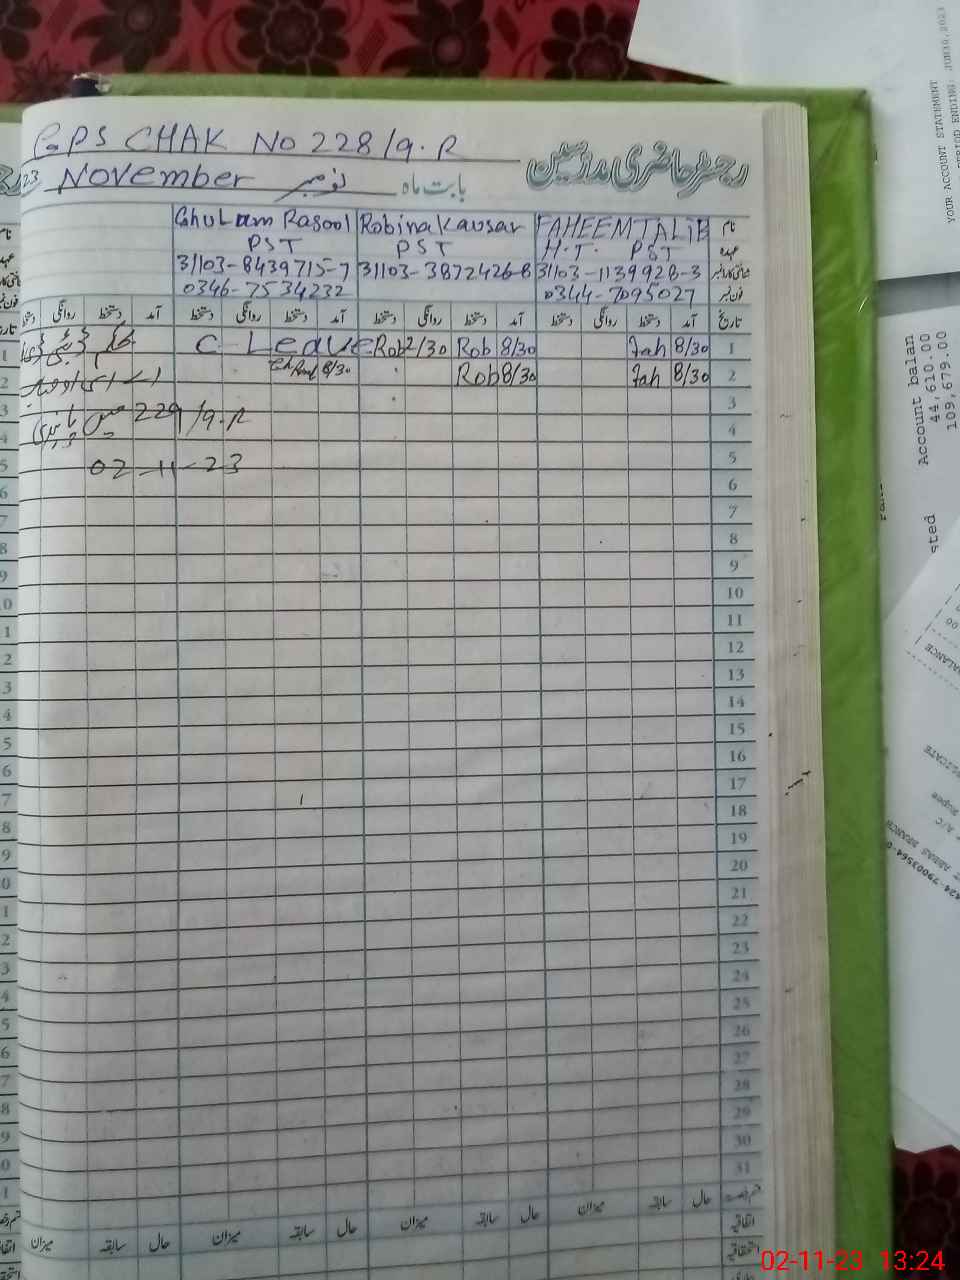 GPS CHAK No 228/9.R
رجسٹر حاضری مدرسین
November نومبر بابت ماہ
نام FAHEEM TALIB Robina Kausar Ghulam Rasool
عہدہ H.T. PST PST PST
31103-1139928-3 31103-3872426-8 31103-8439715-7
فون نمبر 0344-7095027 0346-7534232
تاریخ آمد دستخط روانگی دستخط آمد دستخط روانگی دستخط آمد دستخط روانگی دستخط آمد دستخط روانگی
1 8/30 Fah 8/30 Rob 2/30 Rob C-Leave
2 8/30 Fah 8/30 Rob 8/30
3
229/9.R میں
4
5
02-11-23
6
7
8
9
10
11
12
13
14
15
16
17
18
19
20
21
22
23
24
25
26
27
28
29
30
31
حال سابقہ میزان حال سابقہ میزان حال سابقہ میزان حال سابقہ میزان
اتفاقیہ
استحقاقیہ
YOUR ACCOUNT STATEMENT
PERIOD ENDING: JUN30,2023
Account balan
44,610.00
109,679.00
sted
BALANCE
A/C
ABBAS BRANCH
02-11-23 13:24